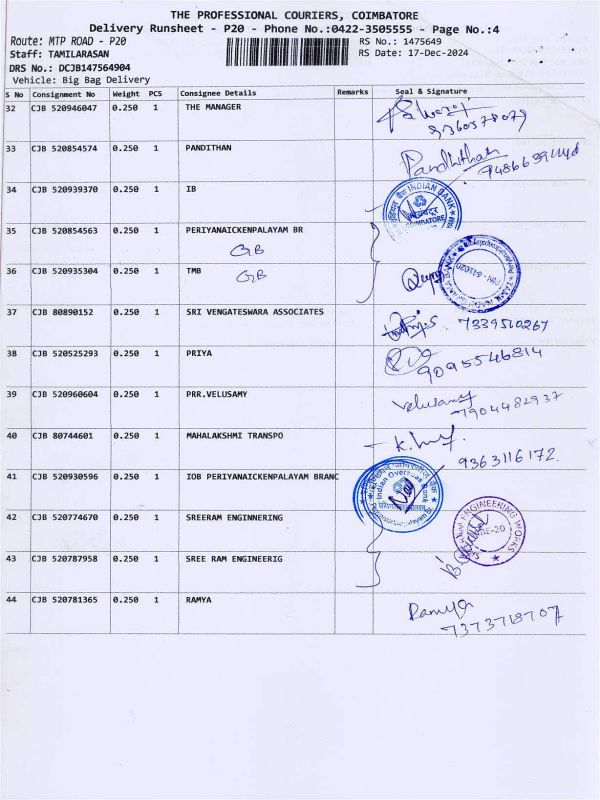 THE PROFESSIONAL COURIERS, COIMBATORE
Delivery Runsheet - P20 - Phone No.:0422-3505555 - Page No.:4
Route: MTP ROAD - P20 RS No.: 1475649
Staff: TAMILARASAN RS Date: 17-Dec-2024
DRS No.: DCJB147564904
Vehicle: Big Bag Delivery
S No Consignment No Weight PCS Consignee Details Remarks Seal & Signature
32 CJB 520946047 0.250 1 THE MANAGER
9360578079
33 CJB 520854574 0.250 1 PANDITHAN Pandhithan
34 CJB 520939370 0.250 1 IB
INDIAN BANK
COIMBATORE
35 CJB 520854563 0.250 1 PERIYANAICKENPALAYAM BR
GB
36 CJB 520935304 0.250 1 TMB
GB
PIN - 641020
37 CJB 80890152 0.250 1 SRI VENGATESWARA ASSOCIATES
7339510267
38 CJB 520525293 0.250 1 PRIYA
9095546814
39 CJB 520960604 0.250 1 PRR.VELUSAMY Velusamy
7904482937
40 CJB 80744601 0.250 1 MAHALAKSHMI TRANSPO
9363116172
41 CJB 520930596 0.250 1 IOB PERIYANAICKENPALAYAM BRANC
Indian Overseas Bank
42 CJB 520774670 0.250 1 SREERAM ENGINNERING
ENGINEERING WORKS
43 CJB 520787958 0.250 1 SREE RAM ENGINEERIG
44 CJB 520781365 0.250 1 RAMYA Ramya
7373718707